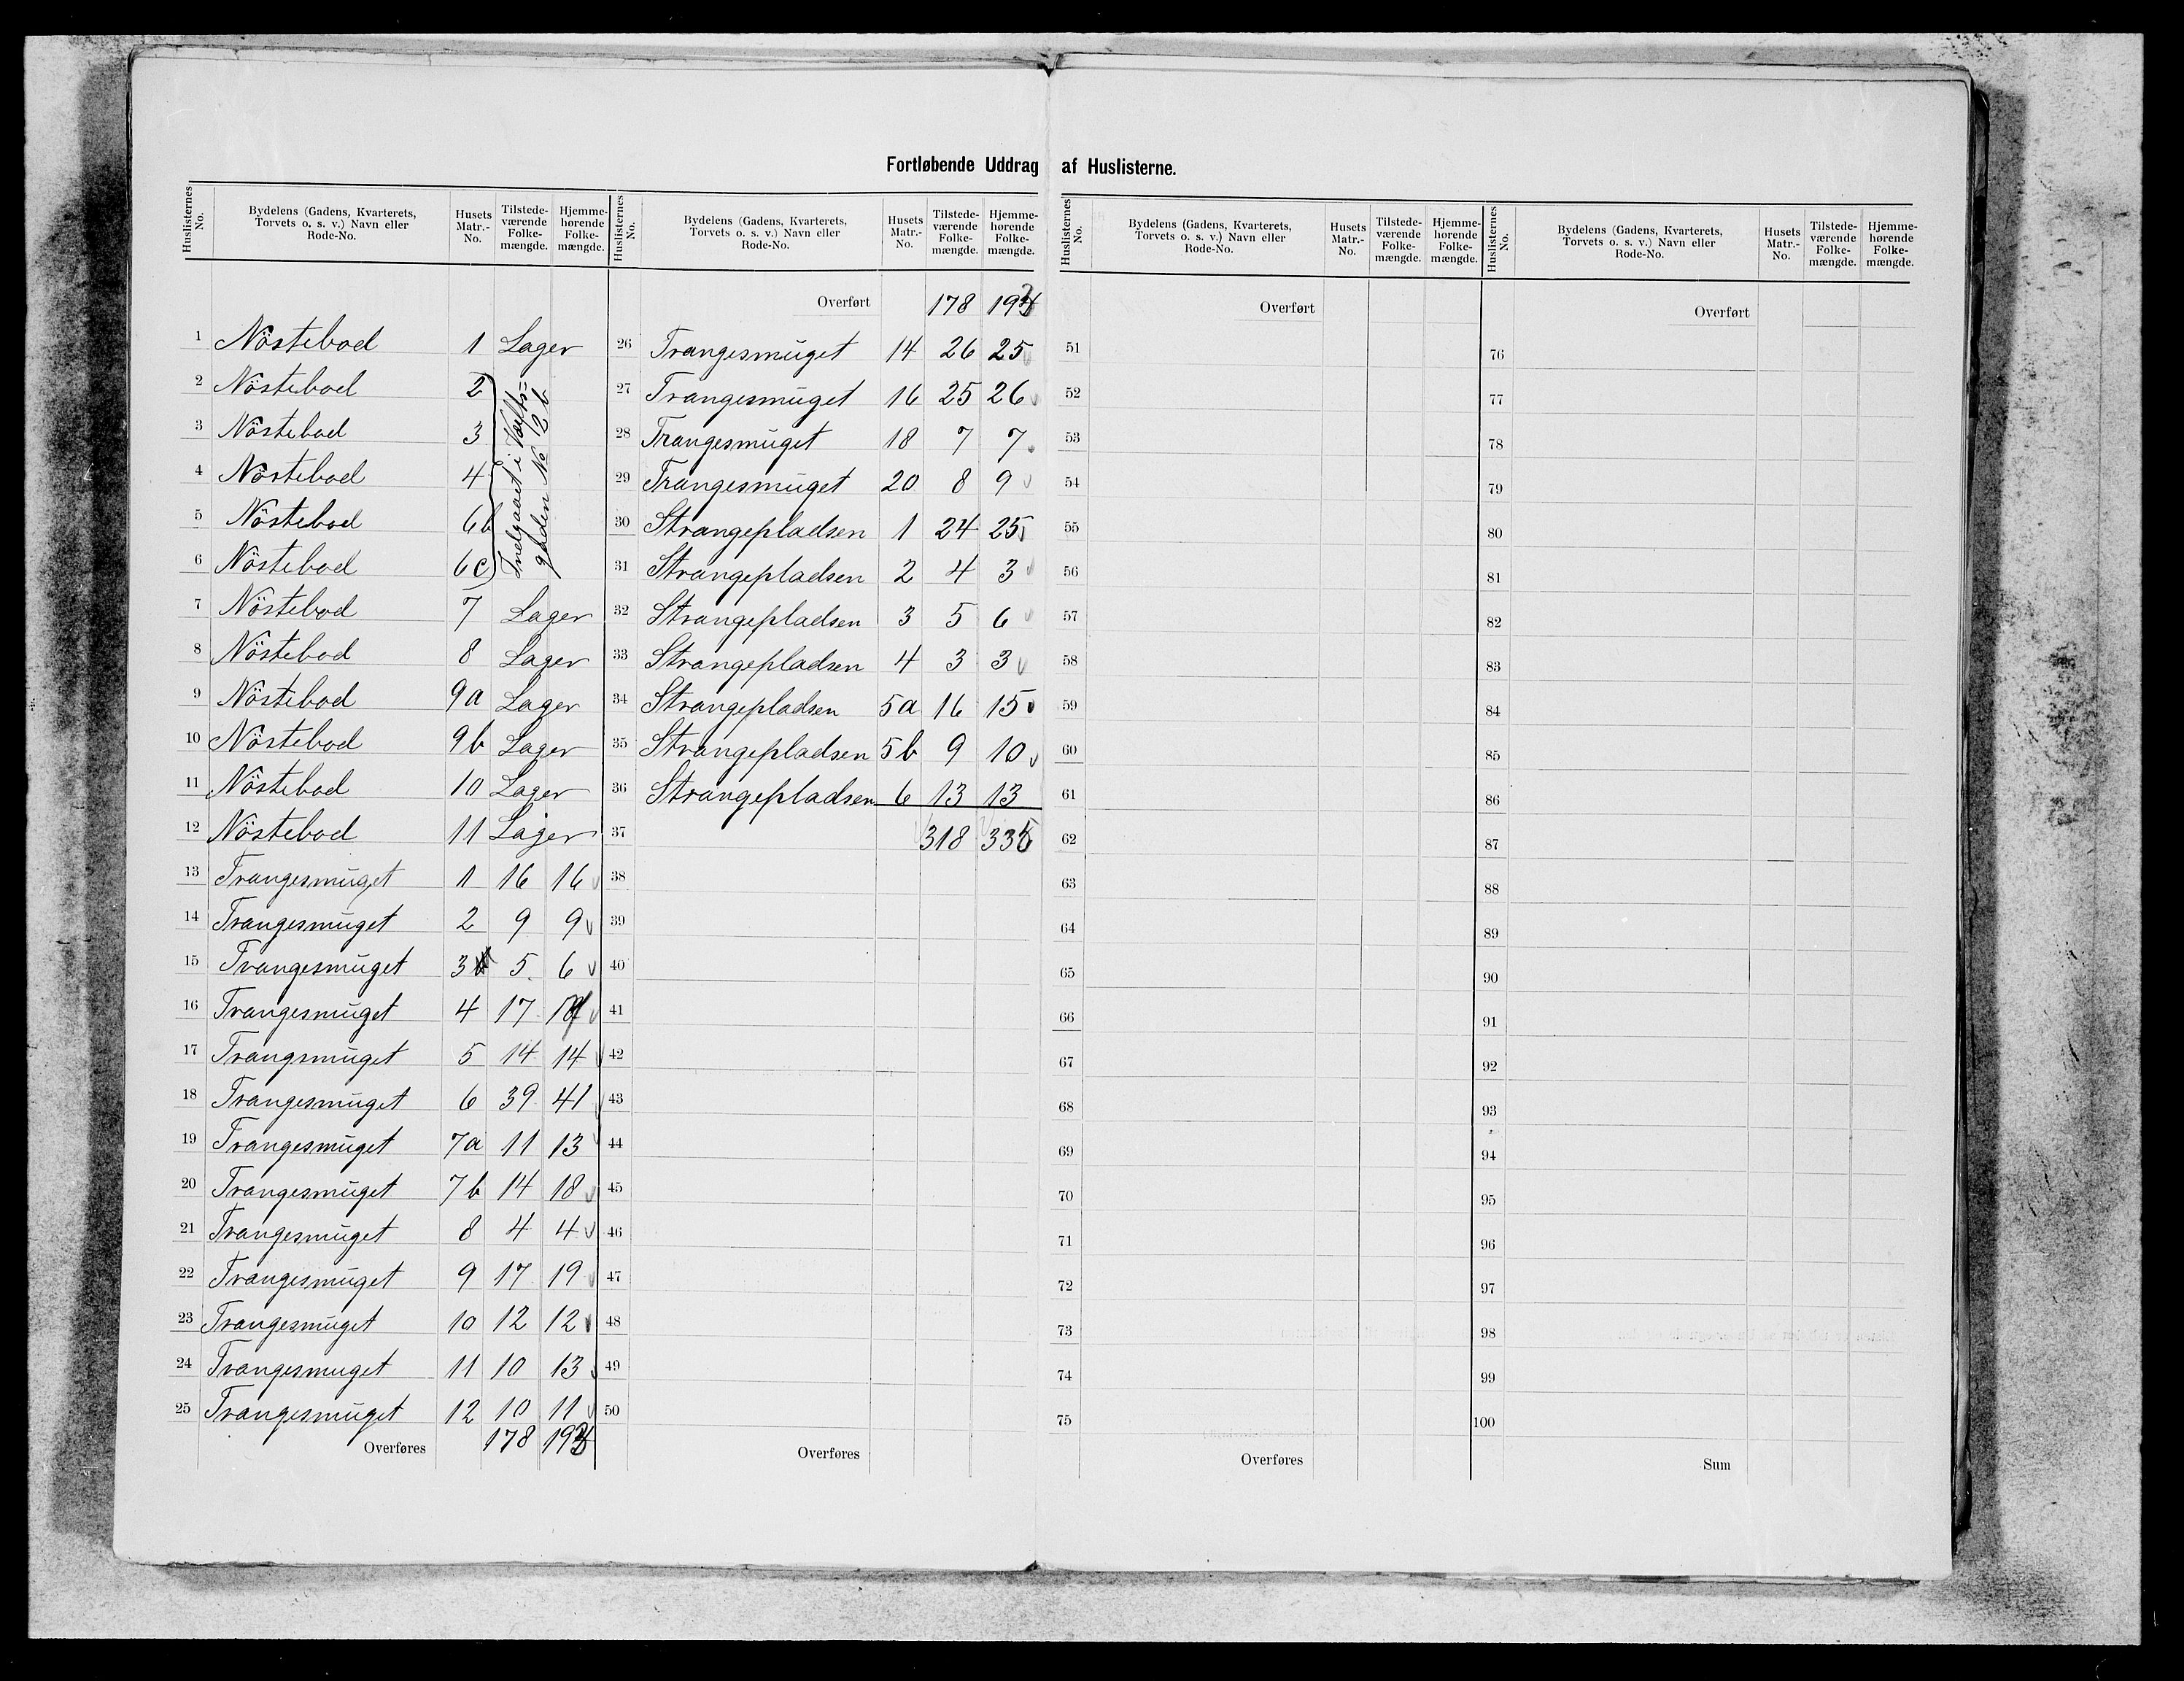 Fortløbende Uddrag af Huslisterne.
Huslisternes No. | Bydelens (Gadens, Kvarterets, Torvets o. s. v.) Navn eller Rode-No. | Husets Matr.-No. | Tilstede-værende Folke-mængde. | Hjemme-hørende Folke-mængde.
1 Nöstebod 1 Lager
2 Nöstebod 2
3 Nöstebod 3
4 Nöstebod 4
5 Nöstebod 6b
6 Nöstebod 6c
Indgaaet i
gaden No 2b
7 Nöstebod 7 Lager
8 Nöstebod 8 Lager
9 Nöstebod 9a Lager
10 Nöstebod 9b Lager
11 Nöstebod 10 Lager
12 Nöstebod 11 Lager
13 Trangesmuget 1 16 16
14 Trangesmuget 2 9 9
15 Trangesmuget 3 5 6
16 Trangesmuget 4 17
17 Trangsmuget 5 14 14
18 Trangesmuget 6 39 41
19 Trangesmuget 7a 11 13
20 Trangesmuget 7b 14 18
21 Trangesmuget 8 4 4
22 Trangesmuget 9 17 19
23 Trangesmuget 10 12 12
24 Trangesmuget 11 10 13
25 Trangesmuget 12 10 11
Overføres 178
Huslisternes No. | Bydelens (Gadens, Kvarterets, Torvets o. s. v.) Navn eller Rode-No. | Husets Matr.-No. | Tilstede-værende Folke-mængde. | Hjemme-hørende Folke-mængde.
Overført 178
26 Trangesmuget 14 26 25
27 Trangesmuget 16 25 26
28 Trangesmuget 18 7 7
29 Trangesmuget 20 8 9
30 Strangepladsen 1 24 25
31 Strangepladsen 2 4 3
32 Strangepladsen 3 5 6
33 Strangepladsen 4 3 3
34 Strangepladsen 5a 16 15
35 Strangepladsen 5b 9 10
36 Strangepladsen 6 13 13
37 318
38
39
40
41
42
43
44
45
46
47
48
49
50
Overføres
Huslisternes No. | Bydelens (Gadens, Kvarterets, Torvets o. s. v.) Navn eller Rode-No. | Husets Matr.-No. | Tilstede-værende Folke-mængde. | Hjemme-hørende Folke-mængde.
Overført
51
52
53
54
55
56
57
58
59
60
61
62
63
64
65
66
67
68
69
70
71
72
73
74
75
Overføres
Huslisternes No. | Bydelens (Gadens, Kvarterets, Torvets o. s. v.) Navn eller Rode-No. | Husets Matr.-No. | Tilstede-værende Folke-mængde. | Hjemme-hørende Folke-mængde.
Overført
76
77
78
79
80
81
82
83
84
85
86
87
88
89
90
91
92
93
94
95
96
97
98
99
100
Sum